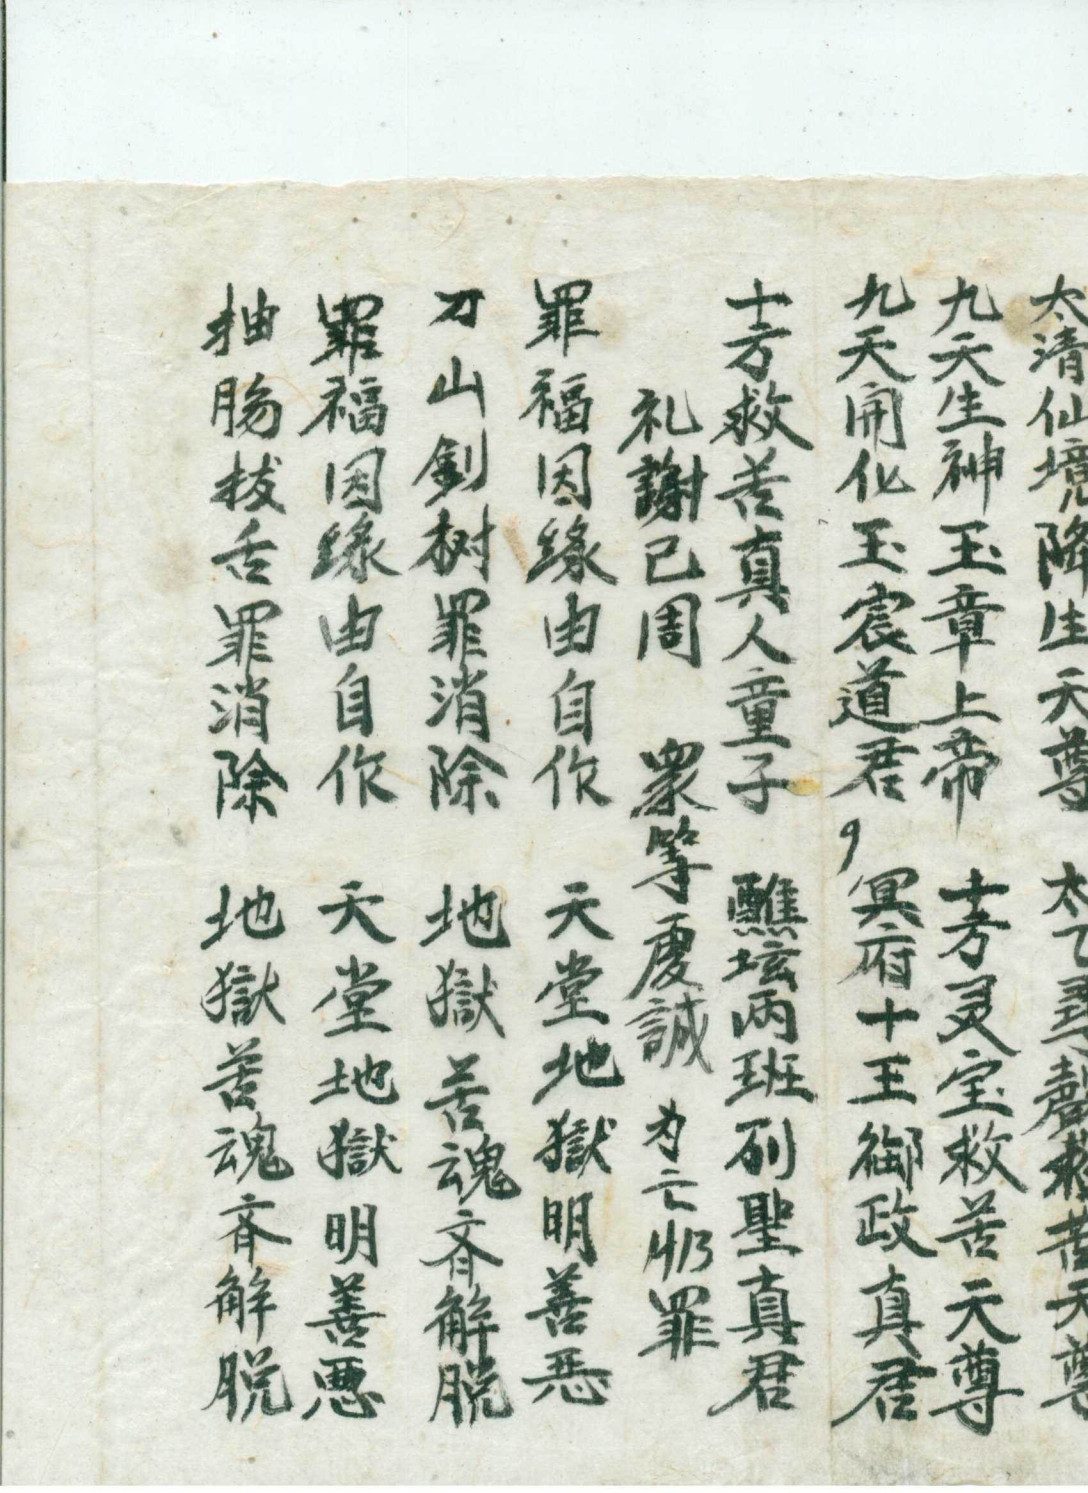 太清仙境降生天尊 太乙尋聲救苦天尊
九天生神玉章上帝 十方灵宝救苦天尊
九天開化玉宸道君 冥府十王御政真君
十方救苦真人童子 醮坛两班列聖真君
礼謝已周 衆等虔誠 为亡忏罪
罪福因緣由自作 天堂地獄明善恶
刀山剑树罪消除 地獄苦魂齐解脱
罪福因緣由自作 天堂地獄明善悪
抽肠拔舌罪消除 地獄苦魂齐解脱